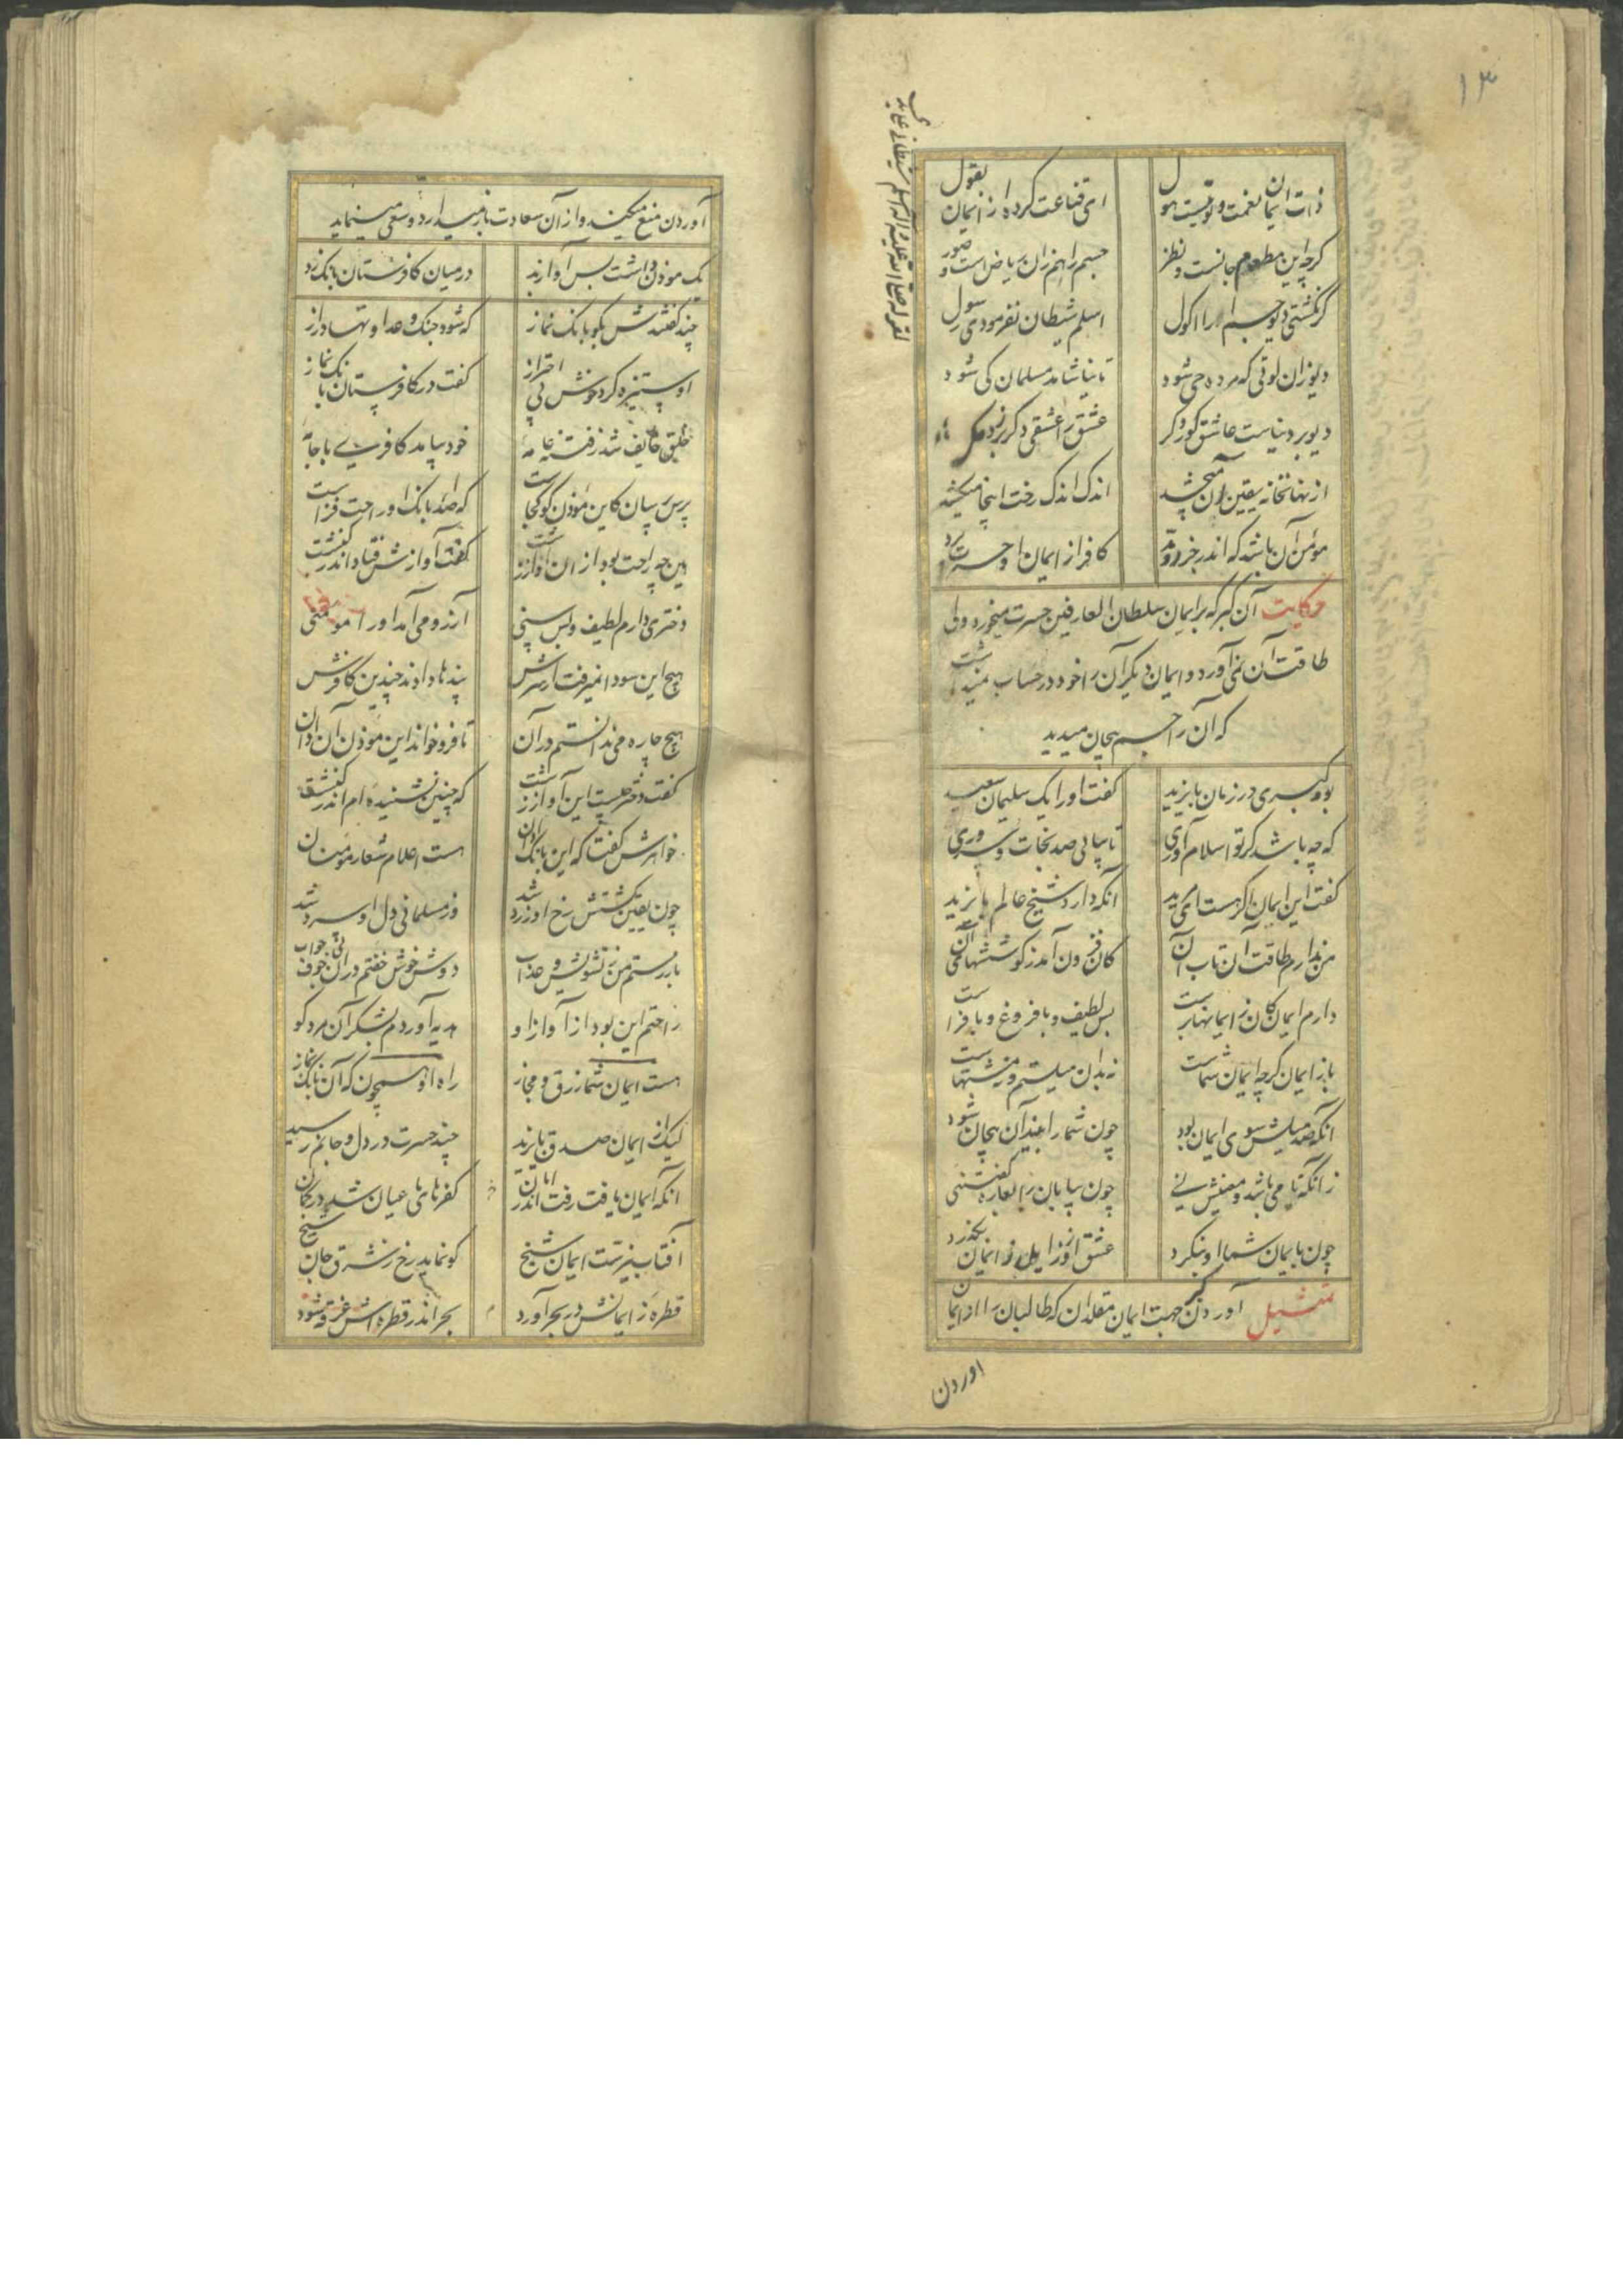 ۱۳
ذات ایمان نعمت و لوتیست هول
ای قناعت کرده از ایمان بقول
کرچه این مطعوم جانست و نظر
جسم را هم زان ریاض است و صور
کر نکشتی دیو جسم آنرا اکول
اسلم شیطان نفرمودی رسول
دیو زان لوتی که مرده حی شود
تا نیاشامد مسلمان کی شود
دیو بر دنیاست عاشق کور و کر
عشق را عشقی دکر برد مکر
از نهانخانه یقین چون میچشد
اندک اندک رخت اینجا میکشد
مؤمن آن باشد که اندر جزر و مد
کافر از ایمان او حسرت برد
حکایت آن کبر که بر ایمان سلطان العارفین حسرت میخورد ولی
طاقت آن نمی آورد و ایمان دیکران را خود در حساب نمیداشت
که آن را جسم بیجان میدید
بود کبری در زمان بایزید
کفت او را یک سلیمان سعید
که چه باشد کر تو اسلام آوری
تا بیابی صد نجات و سروری
کفت این ایمان اکر هست ای مرید
آنکه دارد شیخ عالم بایزید
من ندارم طاقت آن تاب آن
کان فزون آمد ز کوششهای جان
دارم ایمان کان ز ایمانها برست
بس لطیف و با فروغ و با فراست
باز ایمان کرچه ایمان شماست
نه بدان میلستم و نه مشتهاست
آنکه صد میلش سوی ایمان بود
چون شما را بیند آن بیجان شود
زانکه نامی باشد و معنیش نی
چون بیابان را مفازه کفتنی
چون بایمان شما او بنکرد
عشق او زایمان
تمثیل آوردن جهت ایمان مقلدان که طالبان را از ایمان
آوردن
آوردن منع میکنند و از آن سعادت باز میدارد و سعی مینماید
یک موذن داشت بس آواز بد
در میان کافرستان بانک زد
چند کفتندش مکو بانک نماز
که شود جنک و عداوتها دراز
او ستیزه کرد خوش بی احتراز
کفت در کافرستان بانک نماز
خلق خایف شد ز فتنه عامه
خود بیامد کافری با جامه
پرس پرسان کاین موذن کو کجاست
که صدای بانک او راحت فزاست
هین چه راحت بود از آن آواز زشت
کفت آوازش فتاد اندر کنشت
دختری دارم لطیف و بس سنی
آرزو می آمد او را مومنی
هیچ این سودا نمیرفت از سرش
پندها داد چندین کافرش
هیچ چاره می ندانستم در آن
تا فرو خواند این موذن آن اذان
کفت دختر چیست این آواز زشت
که چنین نشنیده ام اندر کنشت
خواهرش کفتا که این بانک اذان
هست اعلام شعار مومنان
چون یقین کشتش رخ او زرد شد
وز مسلمانی دل او سرد شد
باز رستم من ز تشویش و عذاب
دوش خوش خفتم در آن بی خوف خواب
راحتم این بود از آواز او
هدیه آوردم بشکر آن مرد کو
هست ایمان شما زرق و مجاز
راه زن همچون که آن بانک نماز
لیک از ایمان و صدق بایزید
چند حسرت در دل و جانم رسید
آنکه ایمان یافت رفت اندر امان
کفرهای عیان شد در کمان
آفتاب نیر ست ایمان شیخ
کو نماید رخ ز شرق جان شیخ
قطره ز ایمانش در بحر آورد
بحر اندر قطره اش غرقه شود